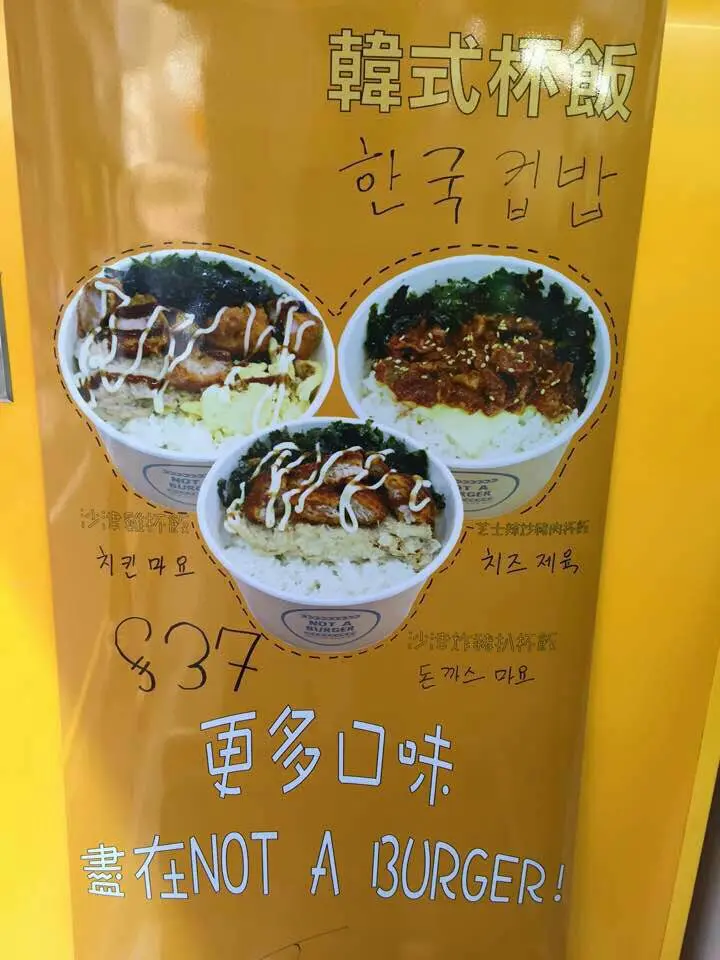 韓式杯飯
한국 컵밥
NOT A
BURGER
NOT A
BURGER
NOT A
BURGER
沙津雞杯飯
치킨마요
芝士辣炒豬肉杯飯
치즈 제육
$37
沙津炸豬扒杯飯
돈까스 마요
更多口味
盡在NOT A BURGER!